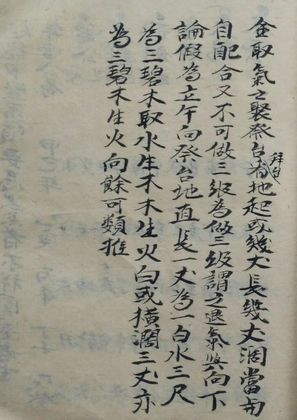 金取氣之聚祭台地起或幾丈長幾丈濶當
拜台
自配合又不可做三級為做三級謂之退氣向下
論假為立午向祭台地直長一丈為一白水三尺
為三碧木取水生木木生火向或横濶三丈亦
為三碧木生火向餘可類推